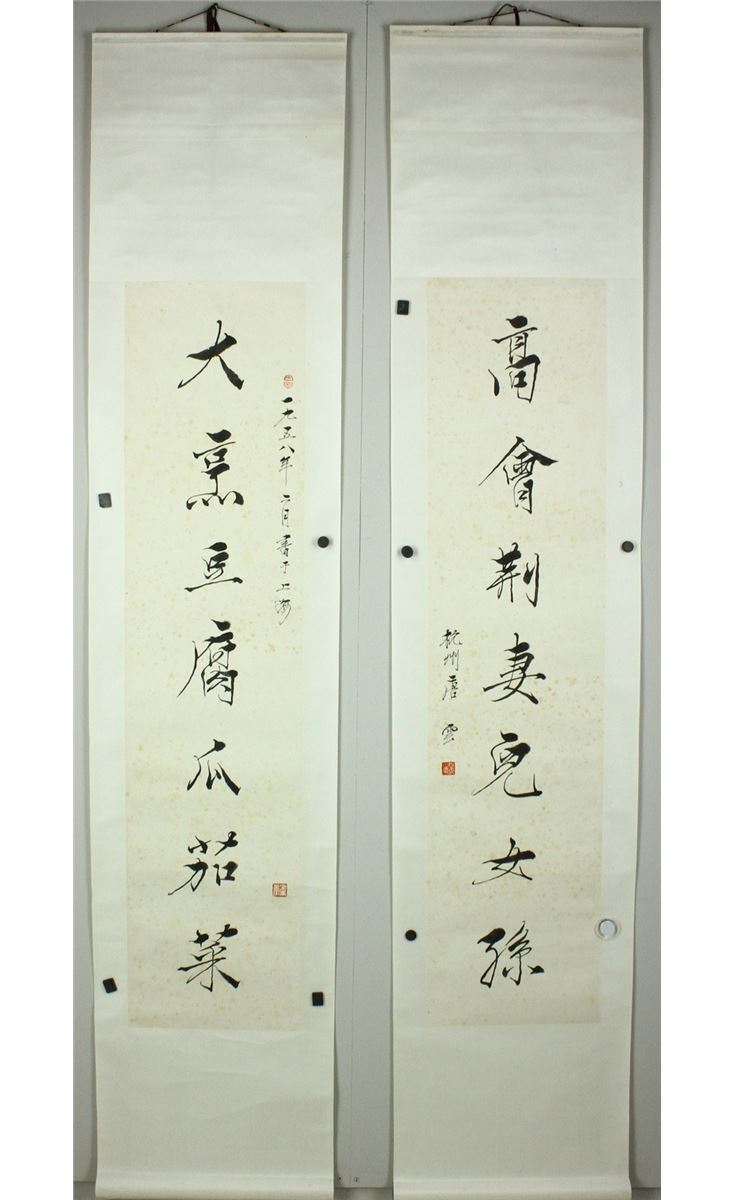 大烹豆腐瓜茄菜
一九五八年二月書于上海
高會荆妻兒女孫
杭州唐雲